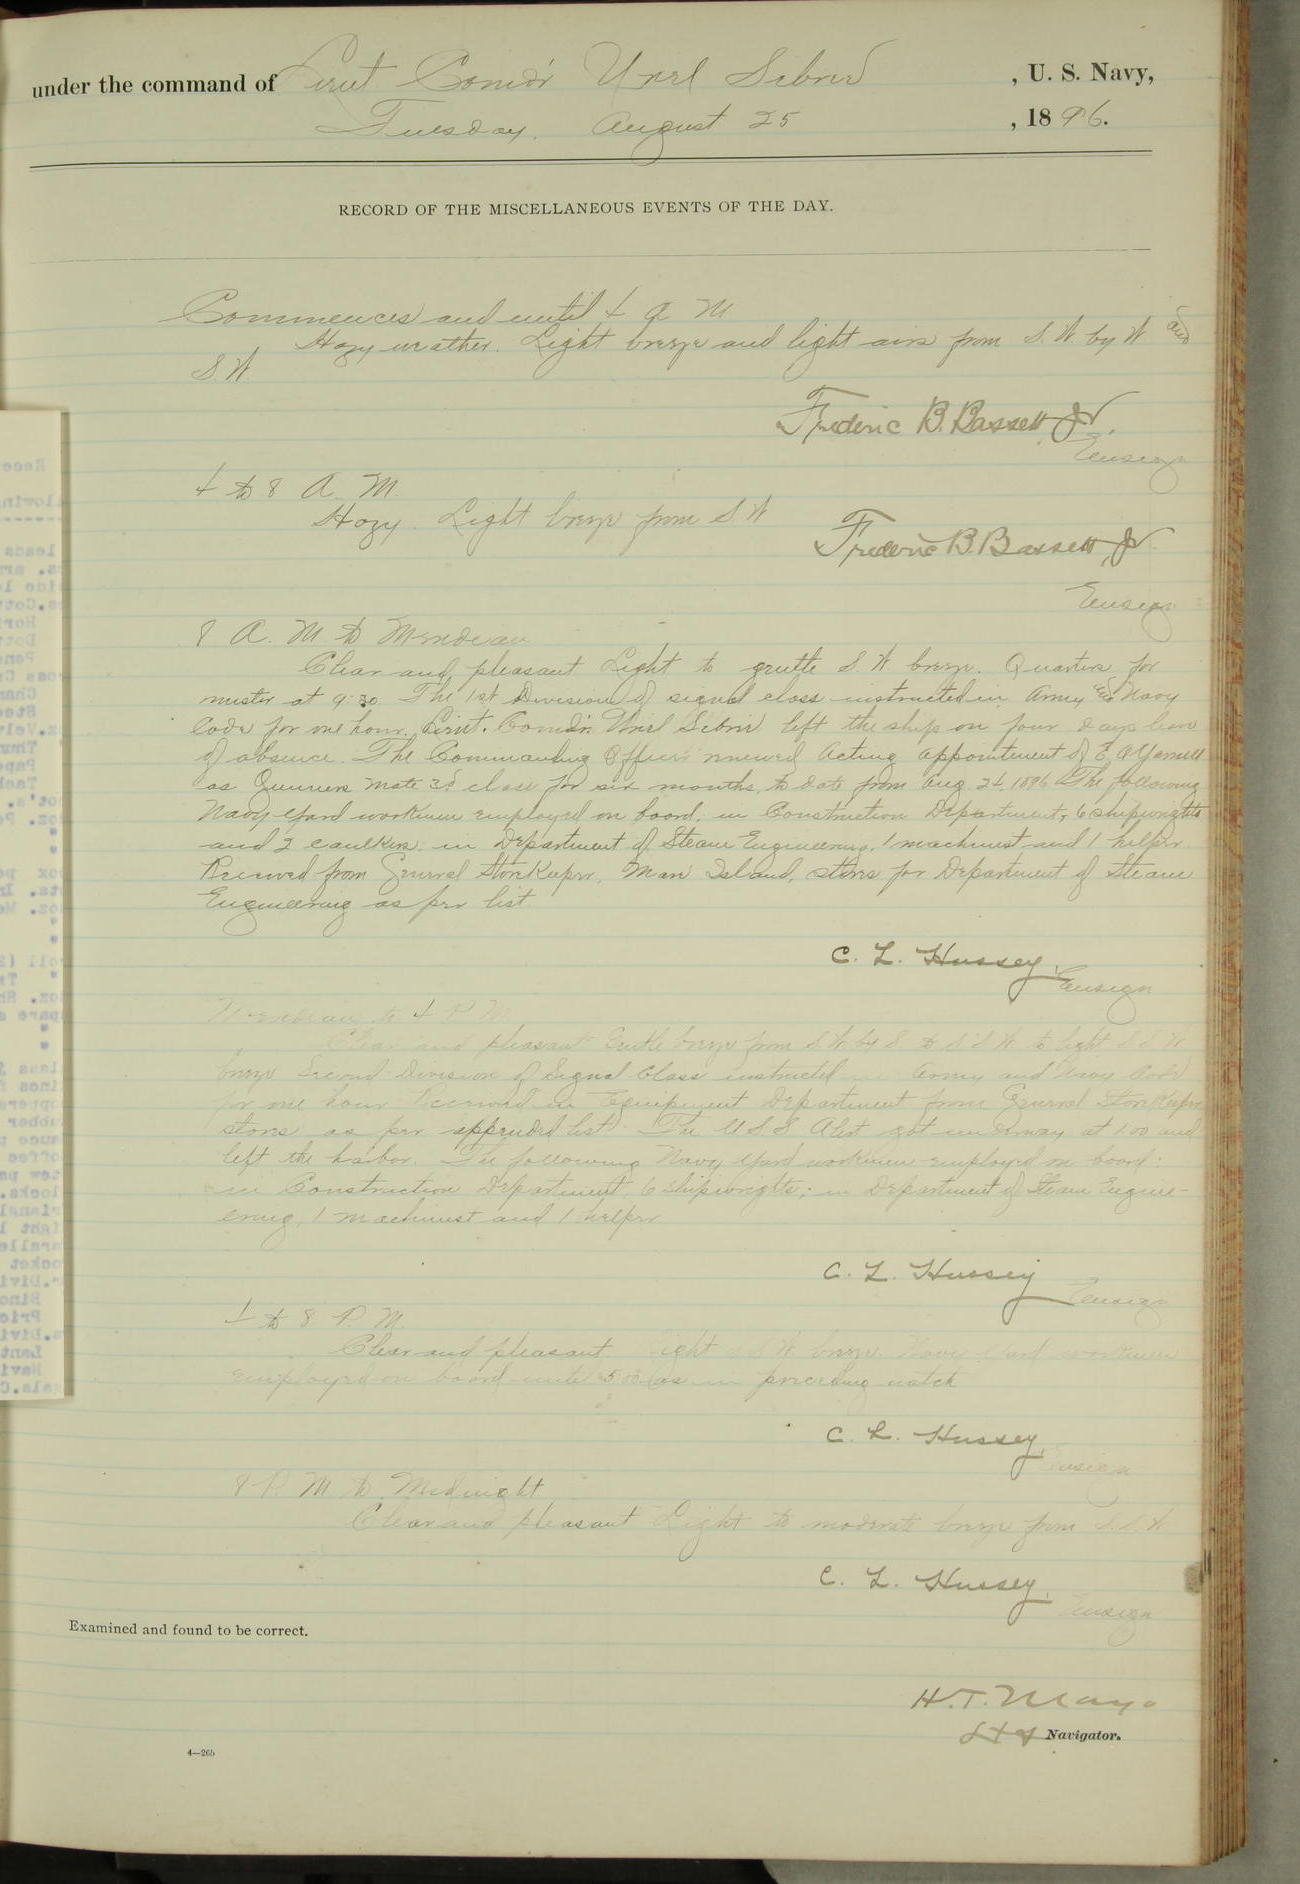 under the command of Lieut Comd'r Uriel Sebree , U. S. Navy,
Tuesday, August 25 , 1896.
RECORD OF THE MISCELLANEOUS EVENTS OF THE DAY.
Commences and until 4 A M
Hazy weather. Light breeze and light airs from S. W by W and
S. W
Frederic B. Bassett Jr.
Ensign
4 to 8 A. M.
Hazy. Light breeze from S. W
Frederic B. Bassett, Jr
Ensign
8 A. M to Meridian
Clear and pleasant Light to gentle S. W breeze. Quarters for
muster at 9:30 The 1st Division of signal class instructed in Army and Navy
Code for one hour. Lieut. Comd'r. Uriel Sebree left the ship on four days leave
of absence. The Commanding Officer renewed Acting appointment of E. A. Yarnell
as Gunners Mate 3d class for six months, to date from Aug 24, 1896. The following
Navy Yard workmen employed on board: in Construction Department, 6 shipwrights
and 2 caulkers: in Department of Steam Engineering, 1 machinist and 1 helper.
Received from General Storekeeper, Mare Island, stores for Department of Steam
Engineering as per list
C. L. Hussey,
Ensign
Meridian to 4 P M
Clear and pleasant Gentle breeze from S. W. by S. to S S W to light S S W
breeze Second Division of Signal Class instructed in Army and Navy Code
for one hour Received in Equipment Department from General Storekeeper
stores as per appended list. The U S S Alert got underway at 1:00 and
left the harbor. The following Navy Yard workmen employed on board:
in Construction Department, 6 shipwrights; in Department of Steam Engine-
ering, 1 machinist and 1 helper
C. L. Hussey
Ensign
4 to 8 P. M.
Clear and pleasant Light S S W breeze. Navy Yard workmen
employed on board until 5:00 as in preceding watch
C. L. Hussey,
Ensign
8 P. M to Midnight
Clear and pleasant Light to moderate breeze from S. S. W
C. L. Hussey,
Ensign
Examined and found to be correct.
H. T. Mayo
Navigator.
4—265